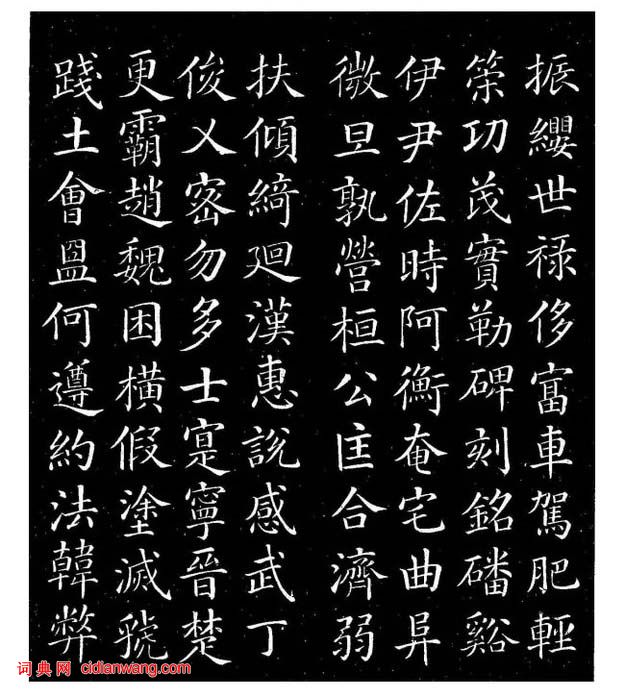 振纓世禄侈富車駕肥輕
策功茂實勒碑刻銘磻谿
伊尹佐時阿衡奄宅曲阜
微旦孰營桓公匡合濟弱
扶傾綺廻漢惠說感武丁
俊乂密勿多士寔寧晉楚
更霸趙魏困橫假塗滅虢
踐土會盟何遵約法韓弊
词典网 cidianwang.com